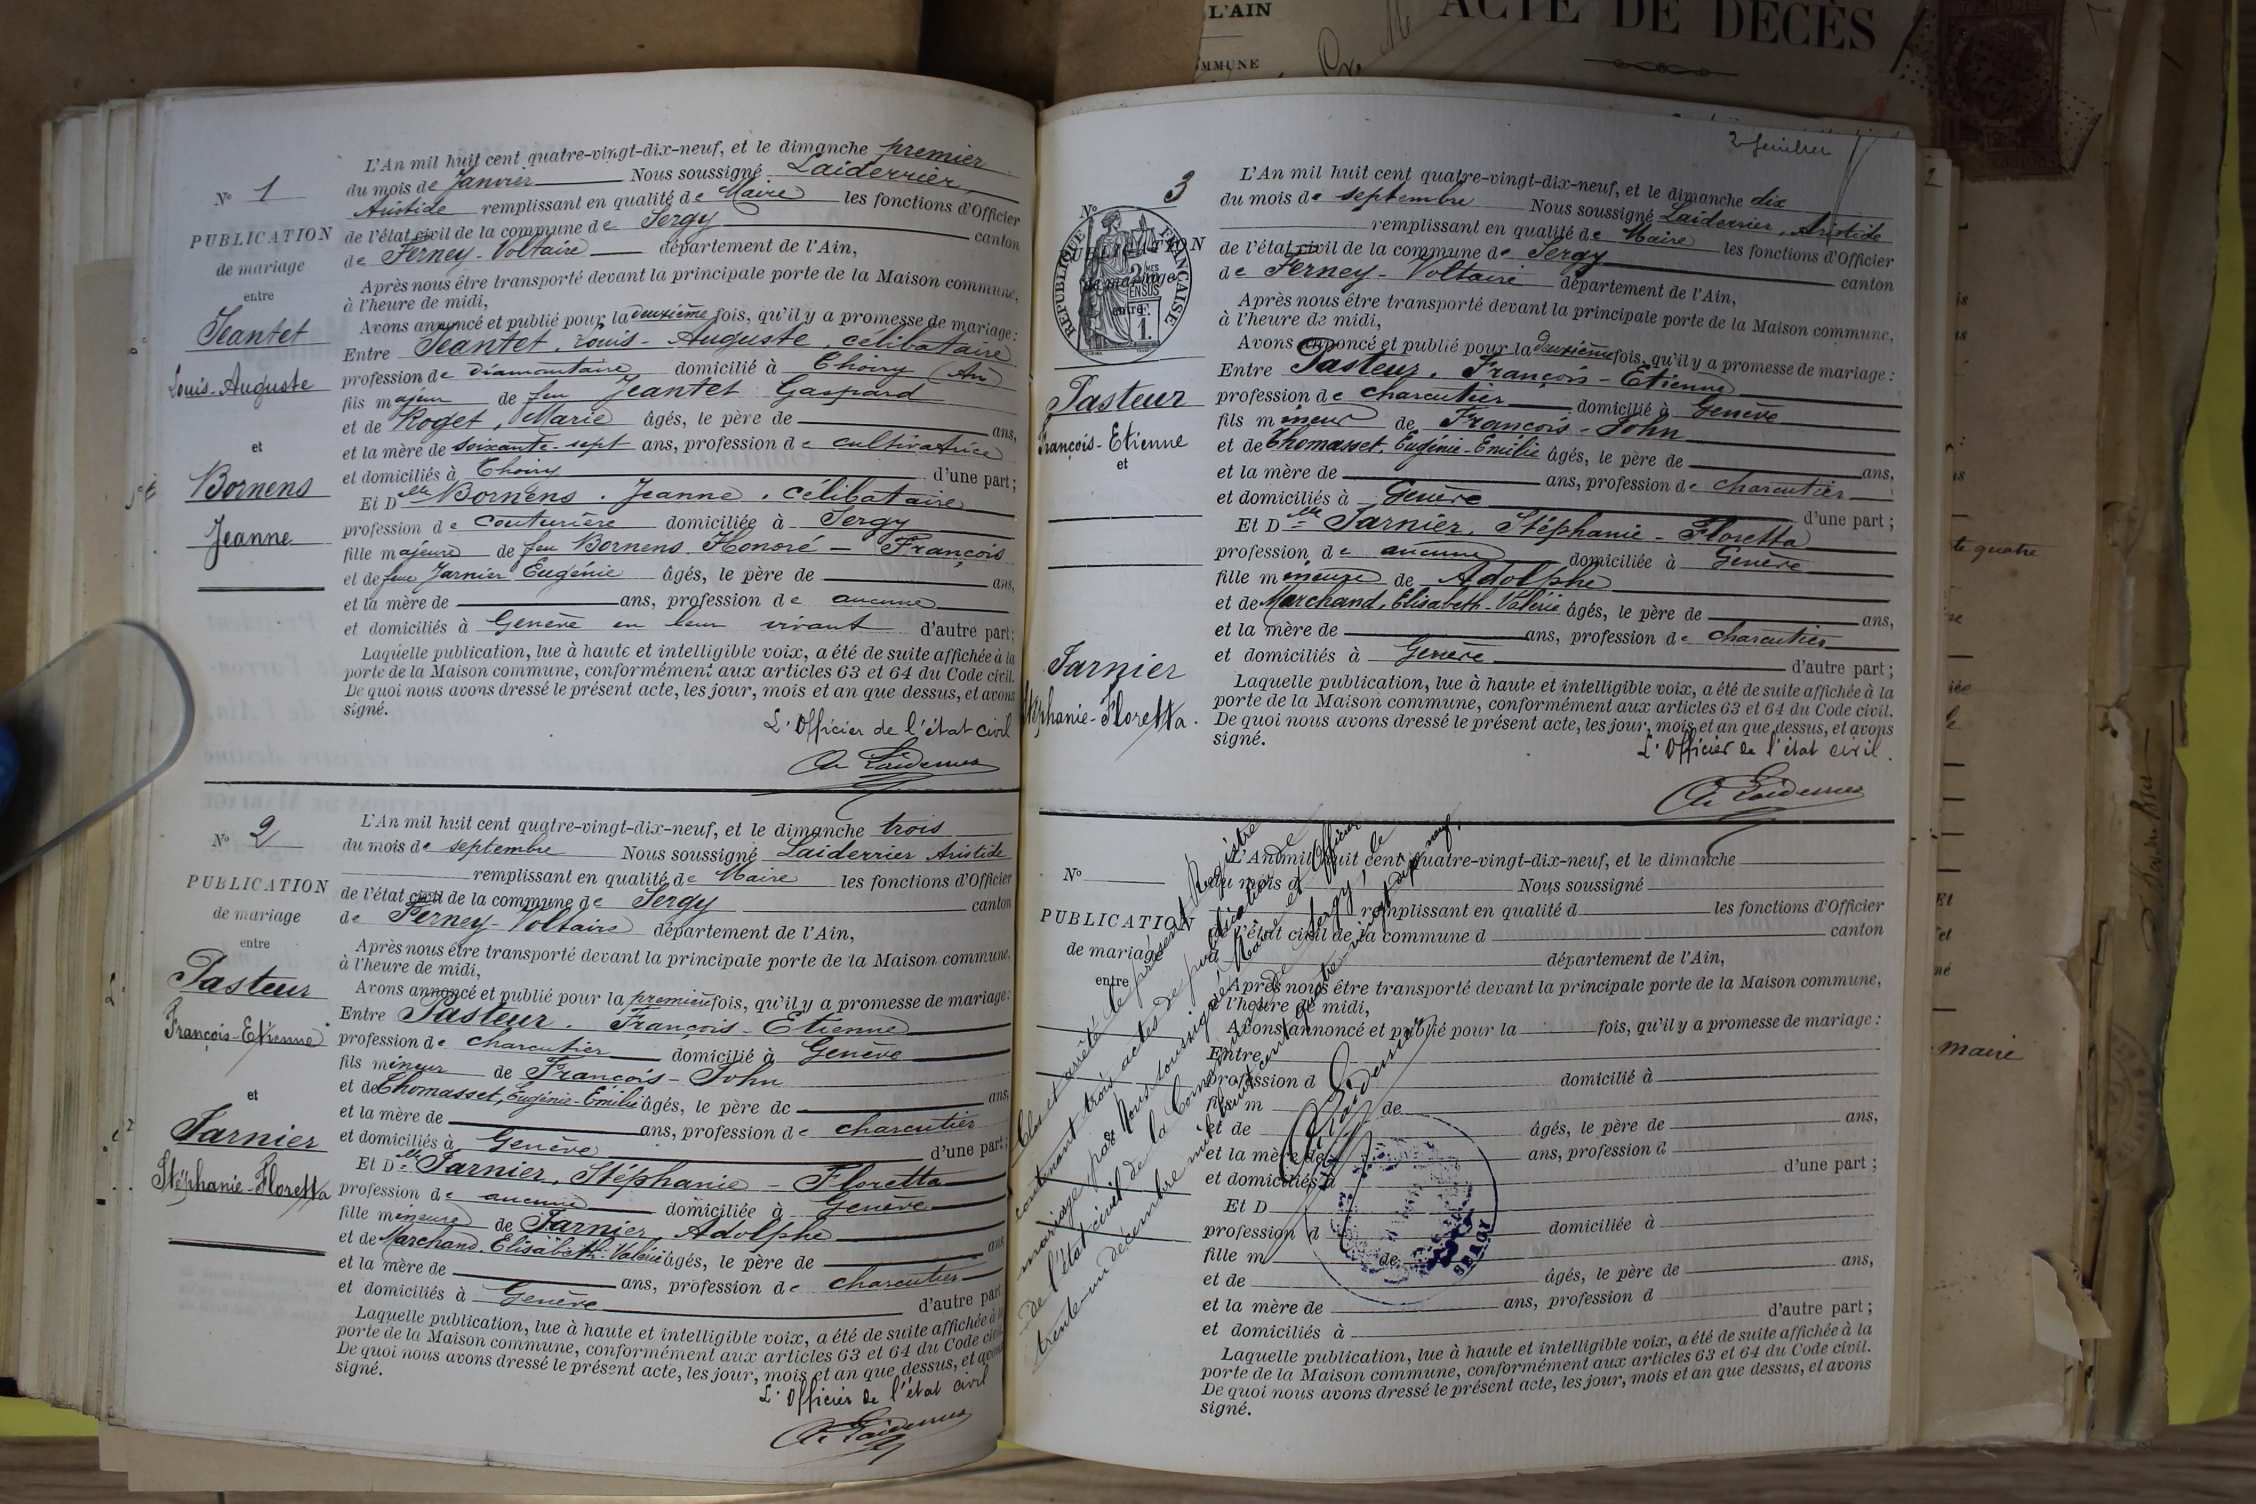 L'AIN
COMMUNE
ACTE DE DÉCÈS
L'An mil huit cent quatre-vingt-dix-neuf, et le dimanche premier
du mois de Janvier Nous soussigné Laiderrier,
Aristide remplissant en qualité de Maire les fonctions d'Officier
de l'état civil de la commune de Sergy canton
de Ferney-Voltaire département de l'Ain,
Après nous être transporté devant la principale porte de la Maison commune,
à l'heure de midi,
Avons annoncé et publié pour la deuxième fois, qu'il y a promesse de mariage :
Entre Jeantet, Louis-Auguste, célibataire
profession de diamantaire domicilié à Thoiry (Ain)
fils majeur de feu Jeantet Gaspard
et de Roget, Marie âgés, le père de ans,
et la mère de soixante-sept ans, profession de cultivatrice
et domiciliés à Thoiry d'une part ;
Et Dlle Bornens, Jeanne, célibataire
profession de couturière domiciliée à Sergy
fille majeure de feu Bornens Honoré - François
et de feue Jarnier Eugénie âgés, le père de ans,
et la mère de ans, profession de aucune
et domiciliés à Genève en leur vivant d'autre part ;
Laquelle publication, lue à haute et intelligible voix, a été de suite affichée à la
porte de la Maison commune, conformément aux articles 63 et 64 du Code civil.
De quoi nous avons dressé le présent acte, les jour, mois et an que dessus, et avons
signé.
L'Officier de l'état civil
Ar Laiderrier
No 1
PUBLICATION
de mariage
entre
Jeantet
Louis-Auguste
et
Bornens
Jeanne
L'An mil huit cent quatre-vingt-dix-neuf, et le dimanche trois
du mois de septembre Nous soussigné Laiderrier Aristide
remplissant en qualité de Maire les fonctions d'Officier
de l'état civil de la commune de Sergy canton
de Ferney-Voltaire département de l'Ain,
Après nous être transporté devant la principale porte de la Maison commune,
à l'heure de midi,
Avons annoncé et publié pour la première fois, qu'il y a promesse de mariage :
Entre Pasteur, François-Etienne
profession de charcutier domicilié à Genève
fils mineur de François-John
et de Thomasset, Eugénie-Emilie âgés, le père de ans,
et la mère de ans, profession de charcutier
et domiciliés à Genève d'une part ;
Et Dlle Jarnier, Stéphanie - Floretta
profession de aucune domiciliée à Genève
fille mineure de Jarnier, Adolphe
et de Marchand, Elisabeth-Valérie âgés, le père de ans
et la mère de ans, profession de charcutier
et domiciliés à Genève d'autre part
Laquelle publication, lue à haute et intelligible voix, a été de suite affichée à la
porte de la Maison commune, conformément aux articles 63 et 64 du Code civil.
De quoi nous avons dressé le présent acte, les jour, mois et an que dessus, et avons
signé.
L'Officier de l'état civil
Ar Laiderrier
No 2
PUBLICATION
de mariage
entre
Pasteur
François-Etienne
et
Jarnier
Stéphanie-Floretta
2e feuillet
L'An mil huit cent quatre-vingt-dix-neuf, et le dimanche dix
du mois de septembre Nous soussigné Laiderrier, Aristide
remplissant en qualité de Maire les fonctions d'Officier
de l'état civil de la commune de Sergy canton
de Ferney-Voltaire département de l'Ain,
Après nous être transporté devant la principale porte de la Maison commune,
à l'heure de midi,
Avons annoncé et publié pour la deuxième fois, qu'il y a promesse de mariage :
Entre Pasteur, François-Etienne
profession de charcutier domicilié à Genève
fils mineur de François-John
et de Thomasset, Eugénie-Emilie âgés, le père de ans,
et la mère de ans, profession de charcutier
et domiciliés à Genève d'une part ;
Et Dlle Jarnier, Stéphanie - Floretta
profession de aucune domiciliée à Genève
fille mineure de Adolphe
et de Marchand, Elisabeth-Valérie âgés, le père de ans,
et la mère de ans, profession de charcutier
et domiciliés à Genève d'autre part ;
Laquelle publication, lue à haute et intelligible voix, a été de suite affichée à la
porte de la Maison commune, conformément aux articles 63 et 64 du Code civil.
De quoi nous avons dressé le présent acte, les jour, mois et an que dessus, et avons
signé.
L'Officier de l'état civil.
Ar Laiderrier
No 3
PUBLICATION
de mariage
entre
RÉPUBLIQUE FRANÇAISE
Pasteur
François-Etienne
et
Jarnier
Stéphanie-Floretta.
L'An mil huit cent quatre-vingt-dix-neuf, et le dimanche
du mois d Nous soussigné
remplissant en qualité d les fonctions d'Officier
de l'état civil de la commune d canton
département de l'Ain,
Après nous être transporté devant la principale porte de la Maison commune,
à l'heure de midi,
Avons annoncé et publié pour la fois, qu'il y a promesse de mariage :
Entre
profession d domicilié à
fils m de
et de âgés, le père de ans,
et la mère de ans, profession d
et domiciliés à d'une part ;
Et D
profession d domiciliée à
fille m de
et de âgés, le père de ans,
et la mère de ans, profession d
et domiciliés à d'autre part ;
Laquelle publication, lue à haute et intelligible voix, a été de suite affichée à la
porte de la Maison commune, conformément aux articles 63 et 64 du Code civil.
De quoi nous avons dressé le présent acte, les jour, mois et an que dessus, et avons
signé.
No
PUBLICATION
de mariage
entre
Clos et arrêté le présent Registre
contenant trois actes de publication de
mariage par Nous soussigné Maire et Officier
de l'état civil de la Commune de Sergy, le
trente-un décembre mil huit cent quatre vingt dix neuf.
Ar Laiderrier
SERGY
te quatre
maire